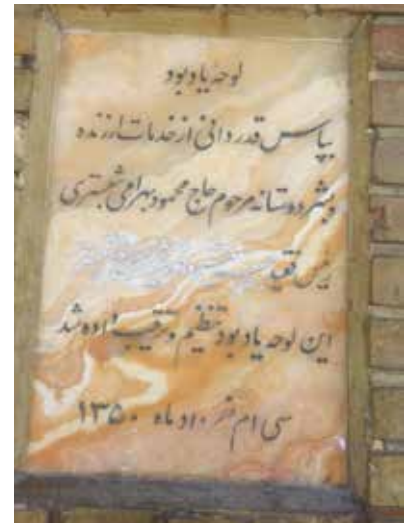 لوحه یادبود
بپاس قدردانی از خدمات ارزنده
و بشردوستانه مرحوم حاج محمود بهرامی شبستری
رئیس فقید
این لوحه یادبود تنظیم و ترتیب داده شد
سی ام خرداد ماه ۱۳۵۰